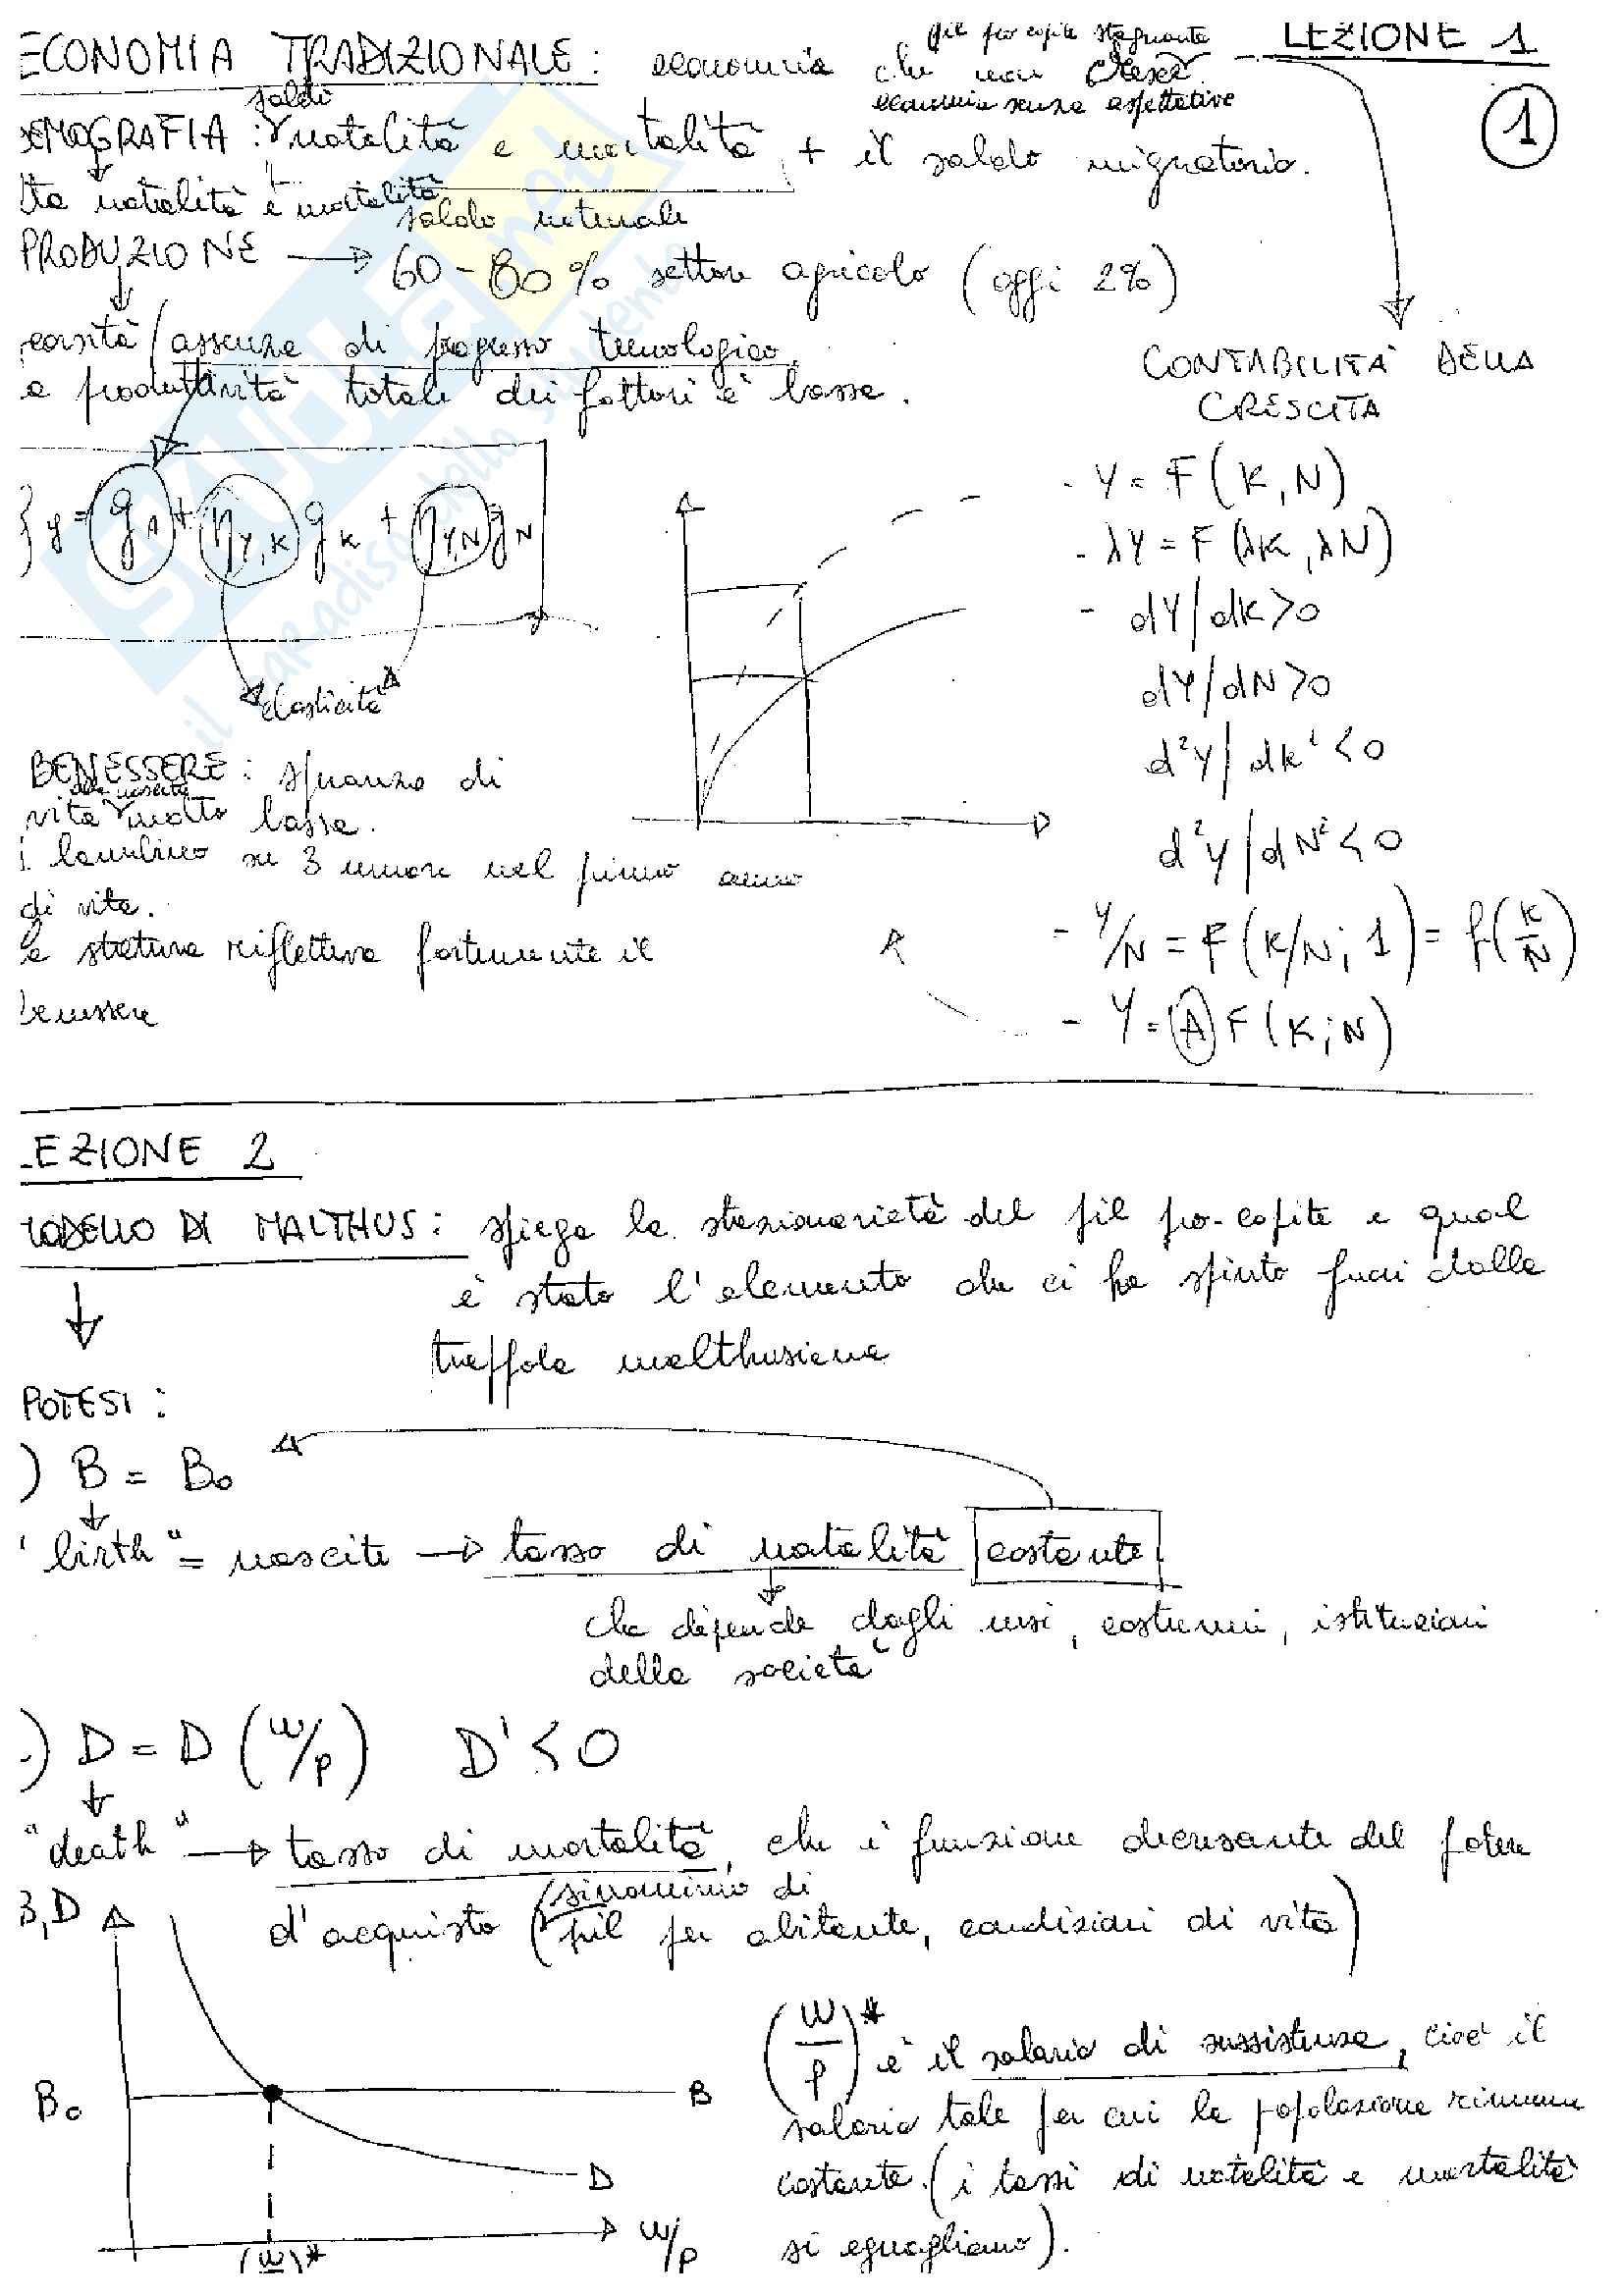 LEZIONE 1
1
ECONOMIA TRADIZIONALE: economia che non cresce
pil pro capite stagnante
economia senza aspettative
EMOGRAFIA: saldo natalità e mortalità + il saldo migratorio.
lta natalità e mortalità
saldo naturale
PRODUZIONE → 60-80% settore agricolo (oggi 2%)
(assenza di progresso tecnologico
a produttività totale dei fattori è bassa.
CONTABILITÀ DELLA
CRESCITA
gy = gA + ηY,K gK + ηY,N gN
elasticità
- Y = F(K,N)
- λY = F(λK, λN)
- dY/dK > 0
dY/dN > 0
d²Y/dK² < 0
d²Y/dN² < 0
- Y/N = F(K/N; 1) = f(K/N)
- Y = A F(K;N)
BENESSERE: speranza di
vita alla nascita molto bassa.
1 bambino su 3 muore nel primo anno
di vita.
la statura rifletteva fortemente il
benessere
LEZIONE 2
MODELLO DI MALTHUS: spiega la stazionarietà del pil pro-capite e qual
è stato l'elemento che ci ha spinto fuori dalla
trappola malthusiana
IPOTESI:
) B = B₀
"birth" = nascite → tasso di natalità costante
che dipende dagli usi, costumi, istituzioni
della società
) D = D (w/p) D' < 0
"death" → tasso di mortalità, che è funzione decrescente del potere
d'acquisto (sinonimo di pil per abitante, condizioni di vita)
B,D
B₀
B
D
w/p
(w)*
(w/p)* è il salario di sussistenza, cioè il
salario tale per cui la popolazione rimane
costante (i tassi di natalità e mortalità
si eguagliano).